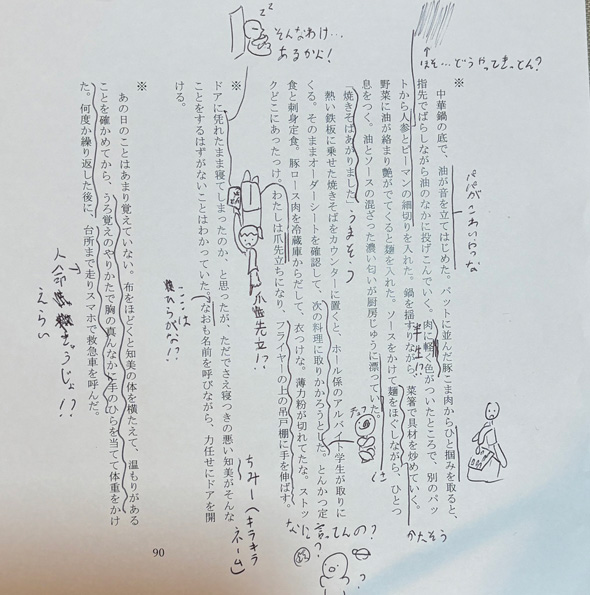 ※
中華鍋の底で、油が音を立てはじめた。バットに並んだ豚こま肉からひと掴みを取ると、
指先でばらしながら油のなかに投げこんでいく。肉に軽く色がついたところで、別のバッ
トから人参とピーマンの細切りを入れた。鍋を揺すりながら、菜箸で具材を炒めていく。
野菜に油が絡まり艶がでてくると麺を入れた。ソースをかけて麺をほぐしながら、ひとつ
息をつく。油とソースの混ざった濃い匂いが厨房じゅうに漂っていた。
「焼きそばあがりました」
熱い鉄板に乗せた焼きそばをカウンターに置くと、ホール係のアルバイト学生が取りに
くる。そのままオーダーシートを確認して、次の料理に取りかかろうとした。とんかつ定
食と刺身定食。豚ロース肉を冷蔵庫からだして、衣つけな。薄力粉が切れてたな。ストッ
クどこにあったっけ。わたしは爪先立ちになり、フライヤーの上の吊戸棚に手を伸ばす。
※
ドアに凭れたまま寝てしまったのか、と思ったが、ただでさえ寝つきの悪い知美がそんな
ことをするはずがないことはわかっていた。なおも名前を呼びながら、力任せにドアを開
ける。
※
あの日のことはあまり覚えていない。布をほどくと知美の体を横たえて、温もりがある
ことを確かめてから、うろ覚えのやりかたで胸の真んなかに手のひらを当てて体重をかけ
た。何度か繰り返した後に、台所まで走りスマホで救急車を呼んだ。
90
↑
ほそ…どうやってきっとん?
パパがこわいやつな
半生!?
かたそう
うまそう
チュ
なに言ってんの?
?
?
爪先立ち!?
zz
そんなわけ…
あるかん!
ここは
ひらがな!?
ちみー(キラキラ
ネーム)
きゅうじょ!?
えらい